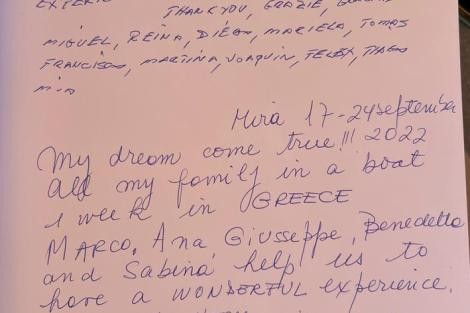 THANK YOU, GRAZIE,
MIGUEL, REINA, DIEGO, MARIELA, TOMAS
FRANCISCO, MARTINA, JOAQUIN, TELEX, TIAGO
MIA
Mirà 17-24 september
My dream come true!!! 2022
All my family in a boat
1 week in GREECE
MARCO, Ana, Giusseppe, Benedetta
and Sabina help us to
have a WONDERFUL experience.